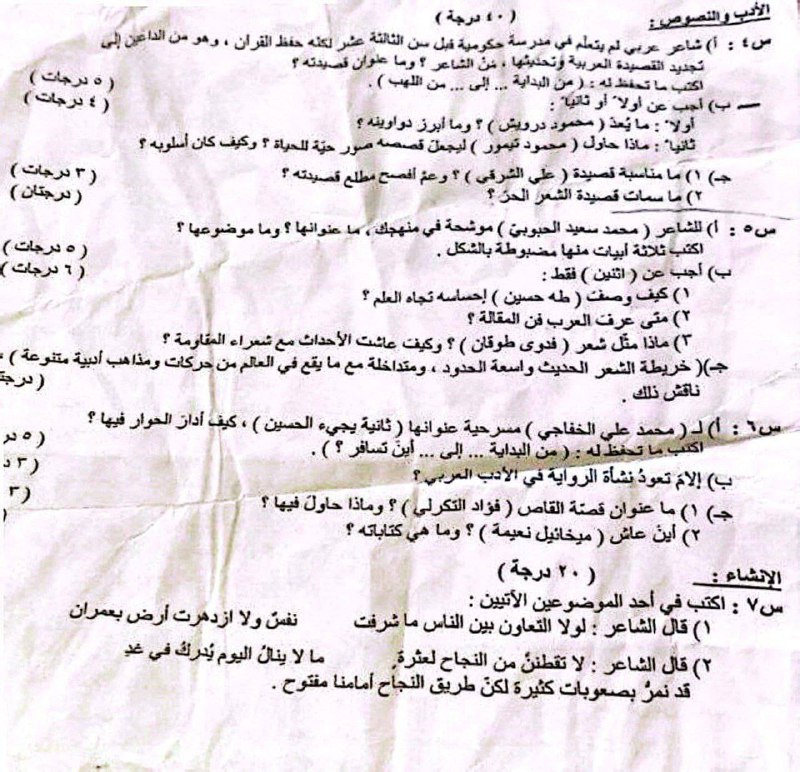 الأدب والنصوص : ( ٤٠ درجة )
س٤ : أ) شاعر عربي لم يتعلّم في مدرسة حكومية قبل سن الثالثة عشر لكنه حفظ القران ، وهو من الداعين إلى
تجديد القصيدة العربية وتحديثها ، مَنْ الشاعر ؟ وما عنوان قصيدته ؟
اكتب ما تحفظ له : ( من البداية ... إلى ... من اللهب ) . ( ٥ درجات )
ب) أجب عن أولاً أو ثانياً : ( ٤ درجات )
أولاً : ما يُعدّ ( محمود درويش ) ؟ وما أبرز دواوينه ؟
ثانياً : ماذا حاول ( محمود تيمور ) ليجعل قصصه صور حيّة للحياة ؟ وكيف كان أسلوبه ؟
جـ) ١) ما مناسبة قصيدة ( علي الشرقي ) ؟ وعمّ أفصح مطلع قصيدته ؟ ( ٣ درجات )
٢) ما سمات قصيدة الشعر الحرّ ؟ ( درجتان )
س٥ : أ) للشاعر ( محمد سعيد الحبوبيّ ) موشحة في منهجك ، ما عنوانها ؟ وما موضوعها ؟
اكتب ثلاثة أبيات منها مضبوطة بالشكل . ( ٥ درجات )
ب) أجب عن ( اثنين ) فقط : ( ٦ درجات )
١) كيف وصفت ( طه حسين ) إحساسه تجاه العلم ؟
٢) متى عرفت العرب فن المقالة ؟
٣) ماذا مثّل شعر ( فدوى طوقان ) ؟ وكيف عاشت الأحداث مع شعراء المقاومة ؟
جـ)( خريطة الشعر الحديث واسعة الحدود ، ومتداخلة مع ما يقع في العالم من حركات ومذاهب أدبية متنوعة ) ،
ناقش ذلك .
س٦ : أ) لـ ( محمد علي الخفاجي ) مسرحية عنوانها ( ثانية يجيء الحسين ) ، كيف أدارَ الحوار فيها ؟
اكتب ما تحفظ له : ( من البداية ... إلى ... أينَ تسافر ؟ ) .
ب) إلامَ تعودُ نشأة الرواية في الأدب العربي ؟
جـ) ١) ما عنوان قصّة القاص ( فؤاد التكرلي ) ؟ وماذا حاولَ فيها ؟
٢) أينَ عاش ( ميخائيل نعيمة ) ؟ وما هي كتاباته ؟
الإنشاء : ( ٢٠ درجة )
س٧ : اكتب في أحد الموضوعين الآتيين :
١) قال الشاعر : لولا التعاون بين الناس ما شرفت نفسٌ ولا ازدهرت أرض بعمران
٢) قال الشاعر : لا تقطننَّ من النجاح لعثرة ما لا ينالُ اليوم يُدركُ في غدِ
قد نمرُّ بصعوبات كثيرة لكنّ طريق النجاح أمامنا مفتوح .